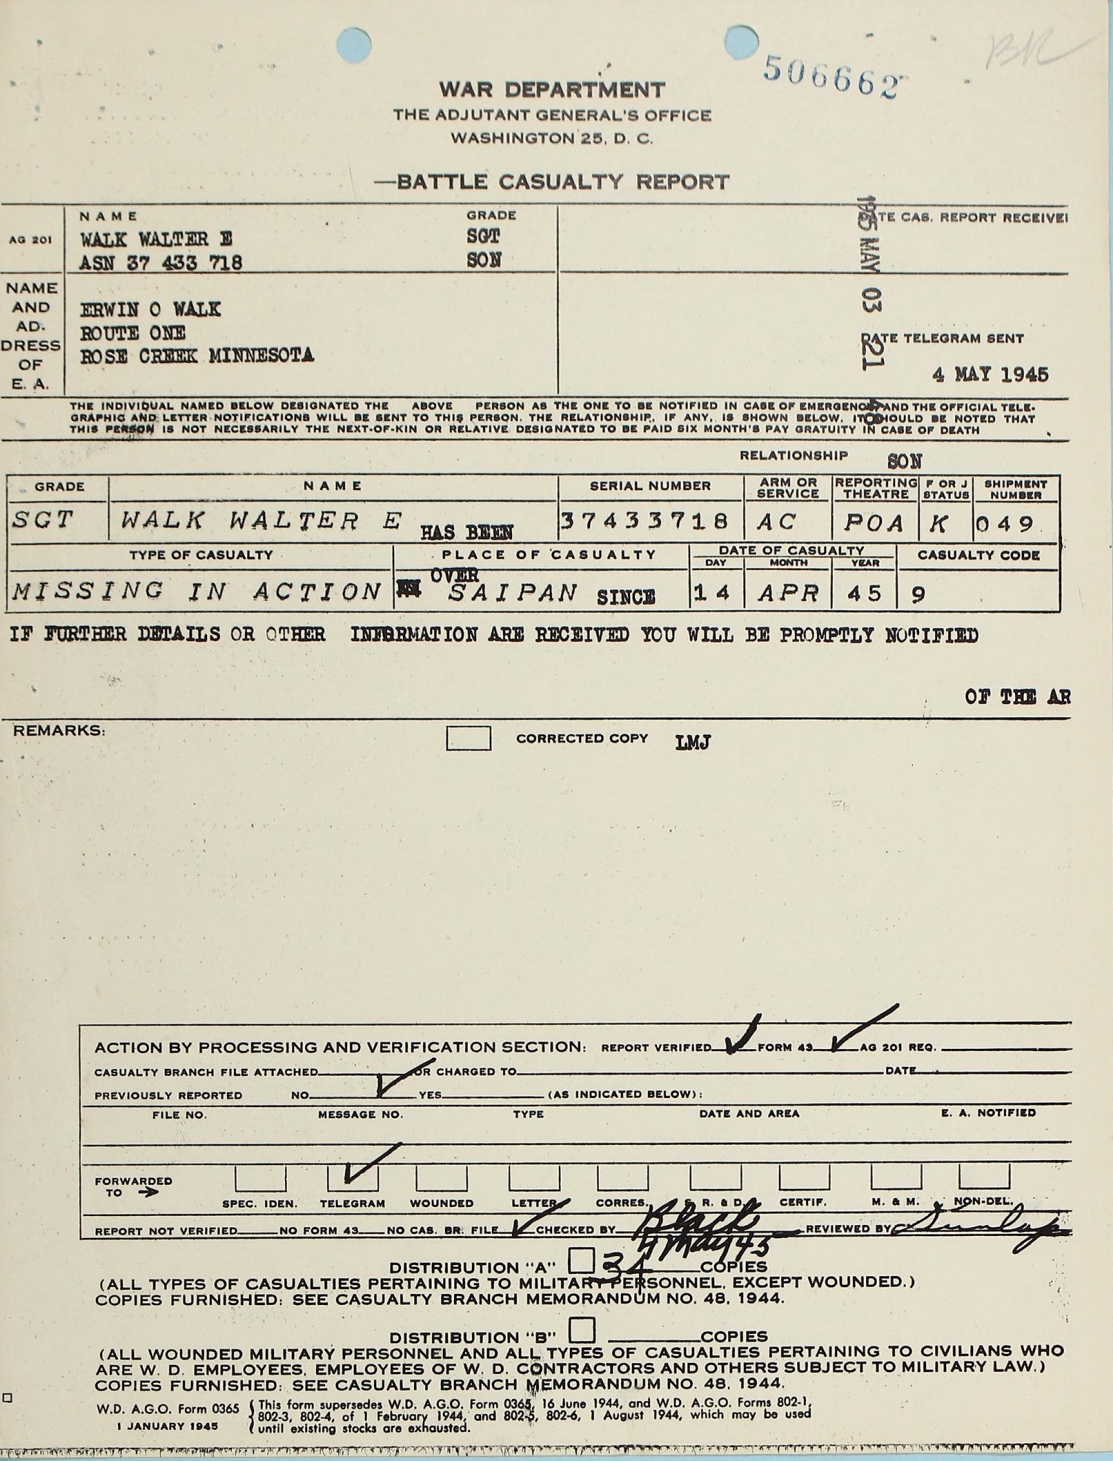 BR
506662
WAR DEPARTMENT
THE ADJUTANT GENERAL'S OFFICE
WASHINGTON 25, D. C.
—BATTLE CASUALTY REPORT
NAME GRADE
AG 201 WALK WALTER E SGT
ASN 37 433 718 SON
TE CAS. REPORT RECEIVE
1945 MAY 03 21 48
NAME
AND
AD-
DRESS
OF
E. A.
ERWIN O WALK
ROUTE ONE
ROSE CREEK MINNESOTA
DATE TELEGRAM SENT
4 MAY 1945
THE INDIVIDUAL NAMED BELOW DESIGNATED THE ABOVE PERSON AS THE ONE TO BE NOTIFIED IN CASE OF EMERGENCY, AND THE OFFICIAL TELE-
GRAPHIC AND LETTER NOTIFICATIONS WILL BE SENT TO THIS PERSON. THE RELATIONSHIP, IF ANY, IS SHOWN BELOW. IT SHOULD BE NOTED THAT
THIS PERSON IS NOT NECESSARILY THE NEXT-OF-KIN OR RELATIVE DESIGNATED TO BE PAID SIX MONTH'S PAY GRATUITY IN CASE OF DEATH
RELATIONSHIP SON
GRADE NAME SERIAL NUMBER ARM OR SERVICE REPORTING THEATRE F OR J STATUS SHIPMENT NUMBER
SGT WALK WALTER E HAS BEEN 37433718 AC POA K 049
TYPE OF CASUALTY PLACE OF CASUALTY DATE OF CASUALTY CASUALTY CODE
DAY MONTH YEAR
MISSING IN ACTION OVER SAIPAN SINCE 14 APR 45 9
IF FURTHER DETAILS OR OTHER INFORMATION ARE RECEIVED YOU WILL BE PROMPTLY NOTIFIED
OF THE AR
REMARKS:
CORRECTED COPY LMJ
ACTION BY PROCESSING AND VERIFICATION SECTION: REPORT VERIFIED FORM 43 AG 201 REQ.
CASUALTY BRANCH FILE ATTACHED OR CHARGED TO DATE
PREVIOUSLY REPORTED NO YES (AS INDICATED BELOW):
FILE NO. MESSAGE NO. TYPE DATE AND AREA E. A. NOTIFIED
FORWARDED
TO →
SPEC. IDEN. TELEGRAM WOUNDED LETTER CORRES. S. R. & D. CERTIF. M. & M. NON-DEL.
REPORT NOT VERIFIED NO FORM 43 NO CAS. BR. FILE CHECKED BY Black REVIEWED BY Dunlap
4 May 45
DISTRIBUTION "A" 34 COPIES
(ALL TYPES OF CASUALTIES PERTAINING TO MILITARY PERSONNEL, EXCEPT WOUNDED.)
COPIES FURNISHED: SEE CASUALTY BRANCH MEMORANDUM NO. 48, 1944.
DISTRIBUTION "B" COPIES
(ALL WOUNDED MILITARY PERSONNEL AND ALL TYPES OF CASUALTIES PERTAINING TO CIVILIANS WHO
ARE W. D. EMPLOYEES, EMPLOYEES OF W. D. CONTRACTORS AND OTHERS SUBJECT TO MILITARY LAW.)
COPIES FURNISHED: SEE CASUALTY BRANCH MEMORANDUM NO. 48, 1944.
W.D. A.G.O. Form 0365
1 JANUARY 1945
This form supersedes W.D. A.G.O. Form 0365, 16 June 1944, and W.D. A.G.O. Forms 802-1,
802-3, 802-4, of 1 February 1944, and 802-5, 802-6, 1 August 1944, which may be used
until existing stocks are exhausted.